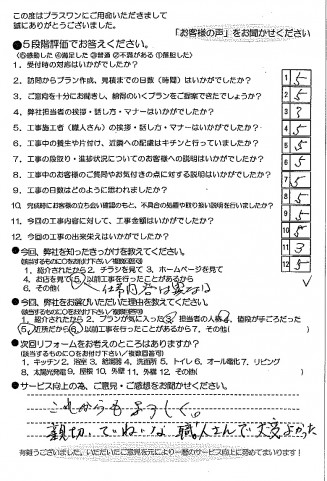 この度はプラスワンにご用命いただきまして
誠にありがとうございました。
「お客様の声」をお聞かせください
●5段階評価でお答えください。
(⑤感動した ④満足した ③普通 ②不満がある ①落胆した)
1. 受付時の対応はいかがでしたか？
2. 訪問からプラン作成、見積までの日数（時間）はいかがでしたか？
3. ご意向を十分にお聞きし、納得のいくプランをご提案できたでしょうか？
4. 弊社担当者の挨拶・話し方・マナーはいかがでしたか？
5. 工事施工者（職人さん）の挨拶・話し方・マナーはいかがでしたか？
6. 工事中の養生や片付け、近隣への配慮はキチンと行っていましたか？
7. 工事の段取り・進捗状況についてのお客様への説明はいかがでしたか？
8. 工事中のお客様のご質問やお気付きの点に対する説明はいかがでしたか？
9. 工事の日数はどのように思われましたか？
10. 完成時にお客様の立ち会い確認のもと、不具合の処置や取り扱い説明を行いましたか？
11. 今回の工事内容に対して、工事金額はいかがでしたか？
12. 今回の工事の出来栄えはいかがでしたか？
1 5
2 5
3 5
4 3
5 5
6 5
7 5
8 5
9 5
10 5
11 3
12 5
●今回、弊社を知ったきっかけを教えてください。
(該当するものに○をお付け下さい／複数回答可)
1. 紹介されたから 2. チラシを見て 3. ホームページを見て
4. お店を見て 5. 以前工事を行ったことがあるから
6. その他(
●今回、弊社をお選びいただいた理由を教えてください。
(該当するものに○をお付け下さい／複数回答可)
1. 紹介されたから 2. プランが気に入った 3. 担当者の人柄 4. 値段が手ごろだった
5. 近所だから 6. 以前工事を行ったことがあるから 7. その他(
●次回リフォームをお考えのところはありますか？
(該当するものに○をお付け下さい／複数回答可)
1. キッチン 2. 浴室 3. 給湯器 4. 洗面所 5. トイレ 6. オール電化 7. リビング
8. 太陽光発電 9. 屋根 10. 外壁 11. 外構 12. その他(
●サービス向上の為、ご意見・ご感想をお聞かせください。
これからもよろしく。
親切、ていねいな職人さんで大変よかった
有難うございました。いただいたご意見を元により一層のサービス向上に努めてまいります！